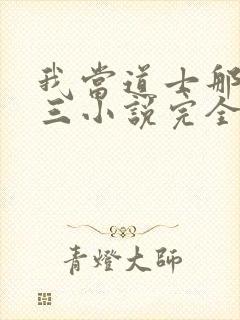 我當道士那
三小說完全
青燈大師